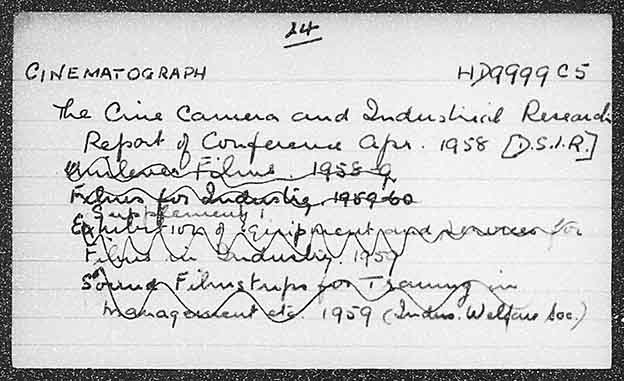 24
CINEMATOGRAPH HD9999 C5
The Cine Camera and Industrial Research
Report of Conference Apr. 1958 [D.S.I.R.]
Unilever Films. 1958-9
Films for Industry, 1959-60
Supplement 1
Exhibition of equipment and services for
Films in Industry. 1959
Sound Filmstrips for Training in
Management etc. 1959 (Indus. Welfare Soc.)